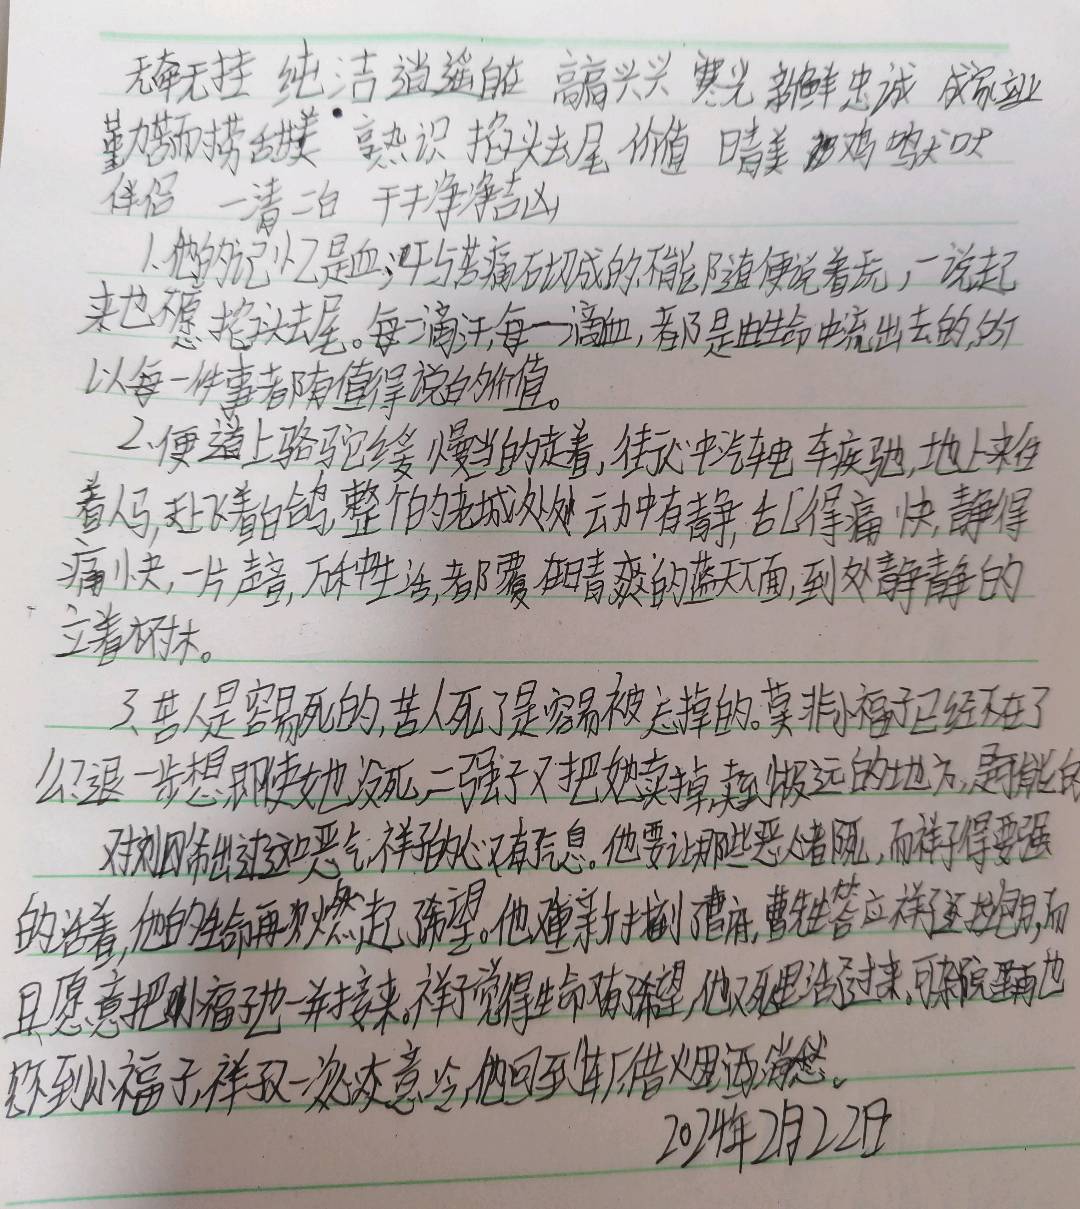 无牵无挂 纯洁 逍遥自在 高高兴兴 寒光 新鲜 忠诚 成家立业
勤劳 甜美 熟识 掐头去尾 价值 晴美 鸡鸣犬吠
伴侣 一清二白 干干净净 吉凶
1.他的记忆是血汗与苦痛砌成的,不能随便说着玩,一说起
来也不愿掐头去尾。每一滴汗,每一滴血,都是由生命中流出去的,所
以每一件事都有值得说的价值。
2.便道上骆驼缓慢当的走着,街心中汽车电车疾驰,地上来往
着人马,天上飞着白鸽,整个的老城处处动中有静,乱得痛快,静得
痛快,一片声音,万种生活,都覆在晴爽的蓝天下面,到处静静的
立着树木。
3.苦人是容易死的,苦人死了是容易被忘掉的。莫非小福子已经不在了
么?退一步想,即使她没死,二强子又把她卖掉,卖到极远的地方,是可能的
对刘四爷出过这口恶气,祥子的心又有了气息。他要让那些恶人都死,而祥子得要强
的活着,他的生命再次燃起了希望。他重新找到了曹府,曹先生答应祥子还拉包月,而
且愿意把小福子也一并接来。祥子觉得生命有了希望,他又死里活过来。可杂院里再也
找不到小福子,祥子又一次心灰意冷,他回到车厂,借烟酒消愁。
2024年2月22日